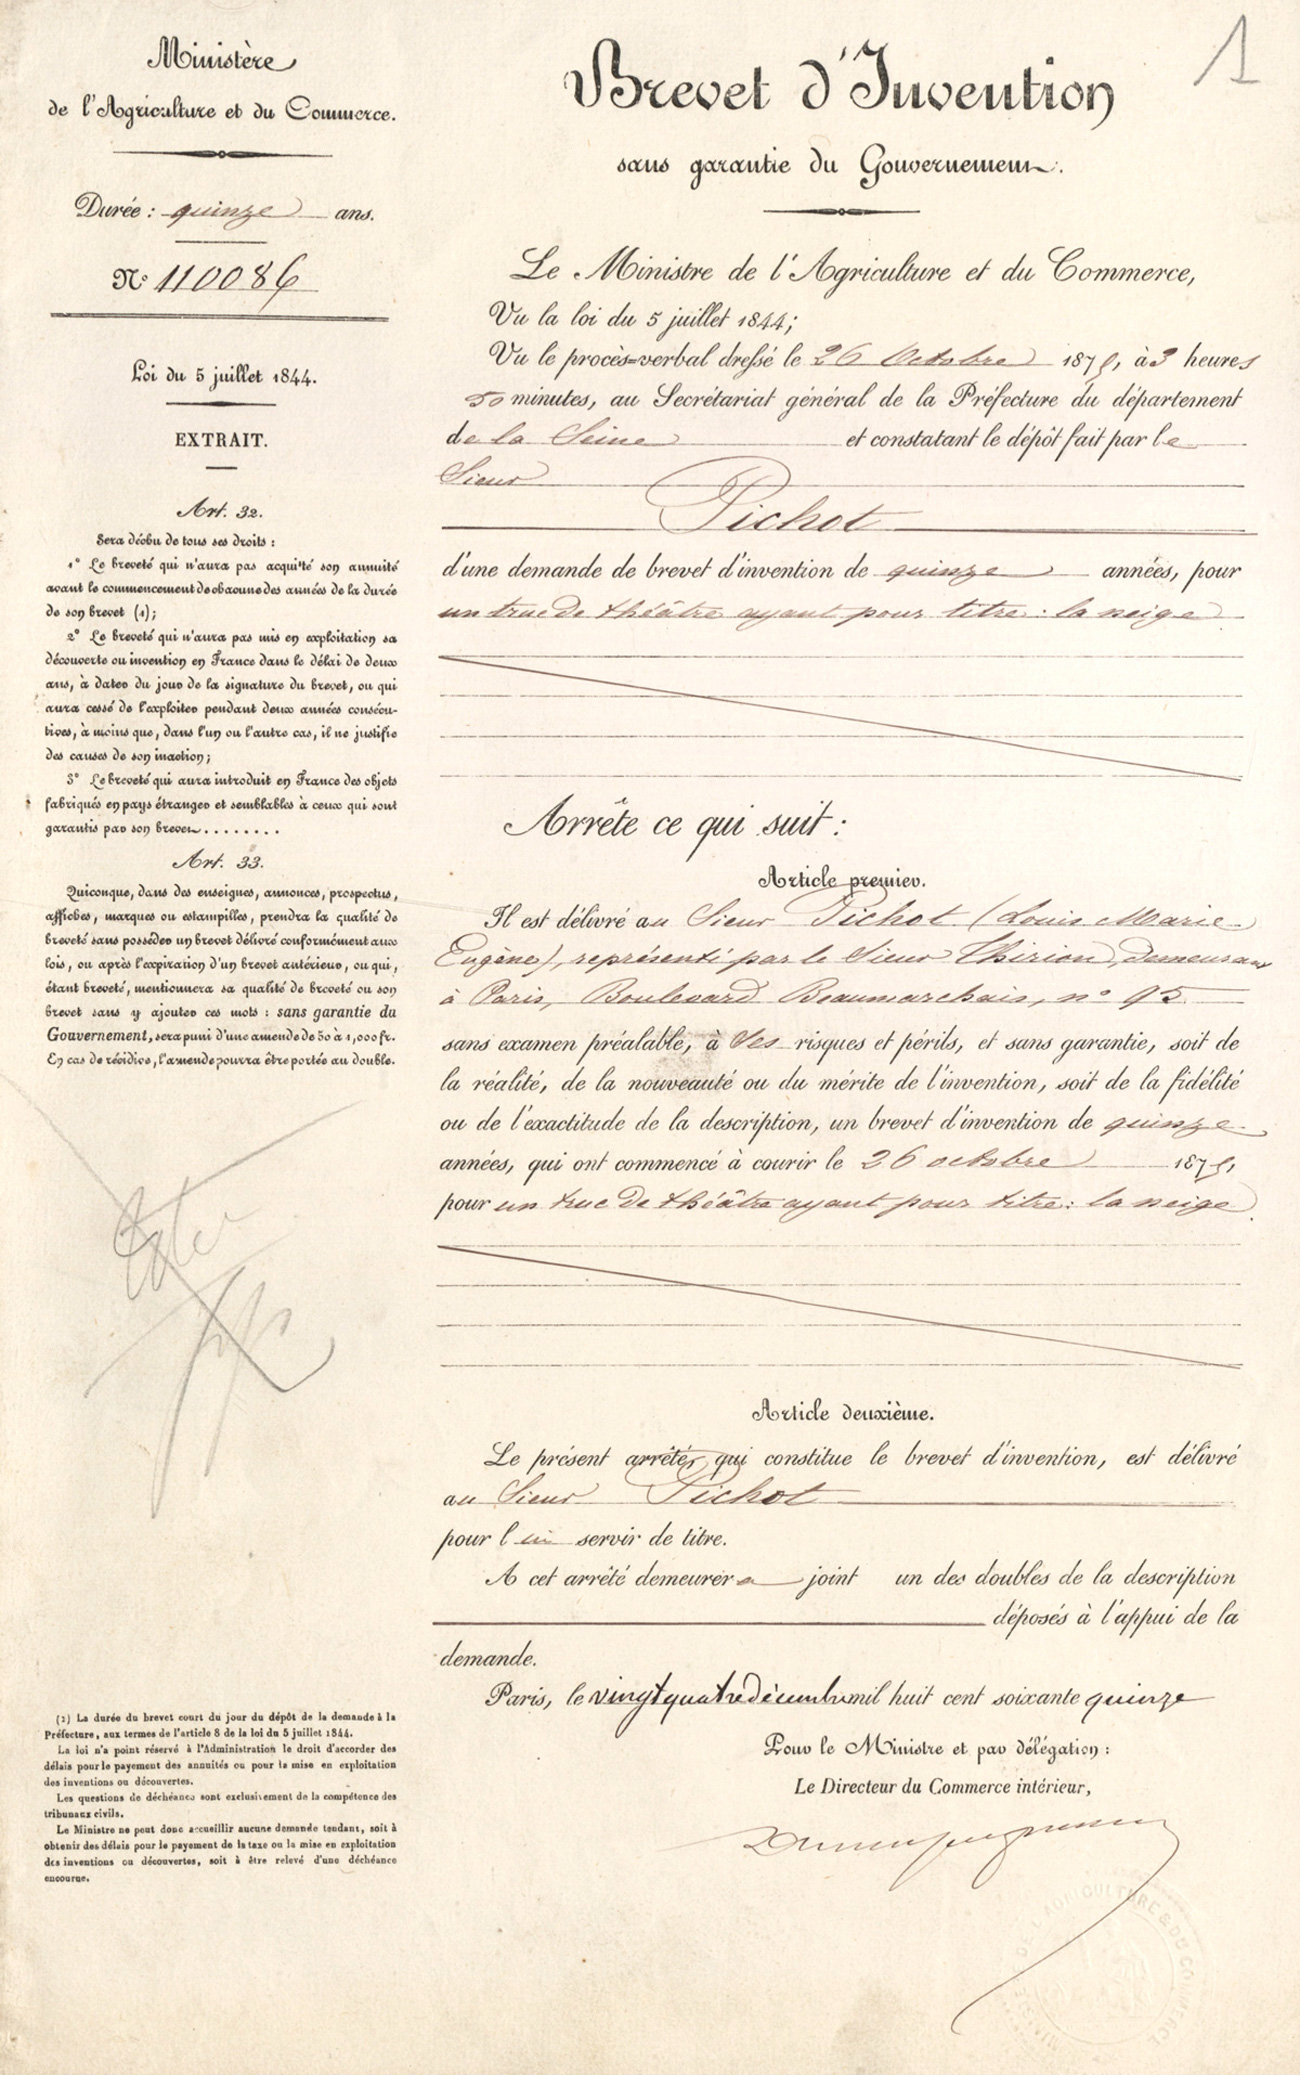 1
Ministère
de l'Agriculture et du Commerce.
Durée : quinze ans.
N° 110086
Loi du 5 juillet 1844.
EXTRAIT.
Art. 32.
Sera déchu de tous ses droits :
1° Le breveté qui n'aura pas acquitté son annuité
avant le commencement de chacune des années de la durée
de son brevet (1);
2° Le breveté qui n'aura pas mis en exploitation sa
découverte ou invention en France dans le délai de deux
ans, à dater du jour de la signature du brevet, ou qui
aura cessé de l'exploiter pendant deux années consécu-
tives, à moins que, dans l'un ou l'autre cas, il ne justifie
des causes de son inaction;
3° Le breveté qui aura introduit en France des objets
fabriqués en pays étranger et semblables à ceux qui sont
garantis par son brevet........
Art. 33.
Quiconque, dans des enseignes, annonces, prospectus,
affiches, marques ou estampilles, prendra la qualité de
breveté sans posséder un brevet délivré conformément aux
lois, ou après l'expiration d'un brevet antérieur, ou qui,
étant breveté, mentionnera sa qualité de breveté ou son
brevet sans y ajouter ces mots : sans garantie du
Gouvernement, sera puni d'une amende de 50 à 1,000 fr.
En cas de récidive, l'amende pourra être portée au double.
(1) La durée du brevet court du jour du dépôt de la demande à la
Préfecture, aux termes de l'article 8 de la loi du 5 juillet 1844.
La loi n'a point réservé à l'Administration le droit d'accorder des
délais pour le payement des annuités ou pour la mise en exploitation
des inventions ou découvertes.
Les questions de déchéance sont exclusivement de la compétence des
tribunaux civils.
Le Ministre ne peut donc accueillir aucune demande tendant, soit à
obtenir des délais pour le payement de la taxe ou la mise en exploitation
des inventions ou découvertes, soit à être relevé d'une déchéance
encourue.
Brevet d'Invention
sans garantie du Gouvernement.
Le Ministre de l'Agriculture et du Commerce,
Vu la loi du 5 juillet 1844;
Vu le procès-verbal dressé le 26 Octobre 1875, à 3 heures
50 minutes, au Secrétariat général de la Préfecture du département
de la Seine et constatant le dépôt fait par le
Sieur
Pichot
d'une demande de brevet d'invention de quinze années, pour
un truc de théâtre ayant pour titre : la neige
Arrête ce qui suit :
Article premier.
Il est délivré au Sieur Pichot (Louis Marie
Eugène), représenté par le Sieur Thirion, demeurant
à Paris, Boulevard Beaumarchais, n° 95
sans examen préalable, à ses risques et périls, et sans garantie, soit de
la réalité, de la nouveauté ou du mérite de l'invention, soit de la fidélité
ou de l'exactitude de la description, un brevet d'invention de quinze
années, qui ont commencé à courir le 26 octobre 1875,
pour un truc de théâtre ayant pour titre : la neige
Article deuxième.
Le présent arrêté, qui constitue le brevet d'invention, est délivré
au Sieur Pichot
pour lui servir de titre.
A cet arrêté demeurera joint un des doubles de la description
déposés à l'appui de la
demande.
Paris, le vingt quatre décembre mil huit cent soixante quinze
Pour le Ministre et par délégation :
Le Directeur du Commerce intérieur,
DE L'AGRICULTURE & DU COMMERCE